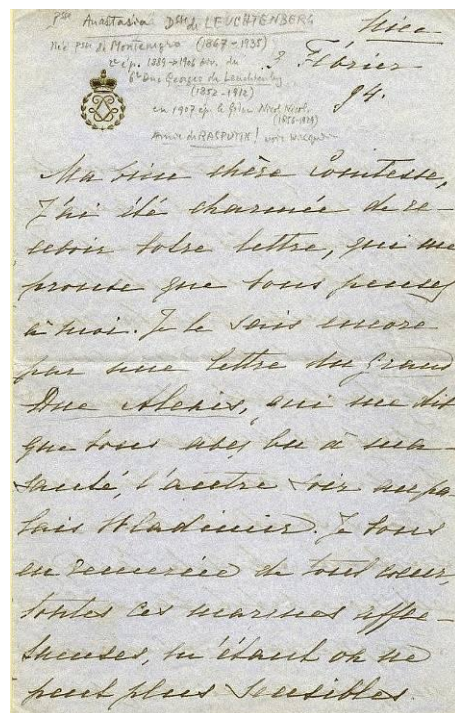 Psse Anastasia Dsse de LEUCHTENBERG
Née Psse de Montenegro (1867-1935)
2e ép. 1889 → 1906 div. du
6e Duc Georges de Leuchtenberg
(1852-1912)
en 1907 ép. le Nicol. Nicol.
(1856-1929)
Amie de RASPUTIN! voir
Nice
3 Février
94.
Ma bien chère Comtesse,
J'ai été charmée de re-
cevoir votre lettre, qui me
prouve que vous pensez
à moi. Je le sais encore
par une lettre du Grand
Duc Alexis, qui me dit
que vous avez bu à ma
santé, l'autre soir au pa-
lais Wladimir. Je vous
en remercie de tout cœur,
toutes ces marques affec-
tueuses, m'étant on ne
peut plus sensibles.